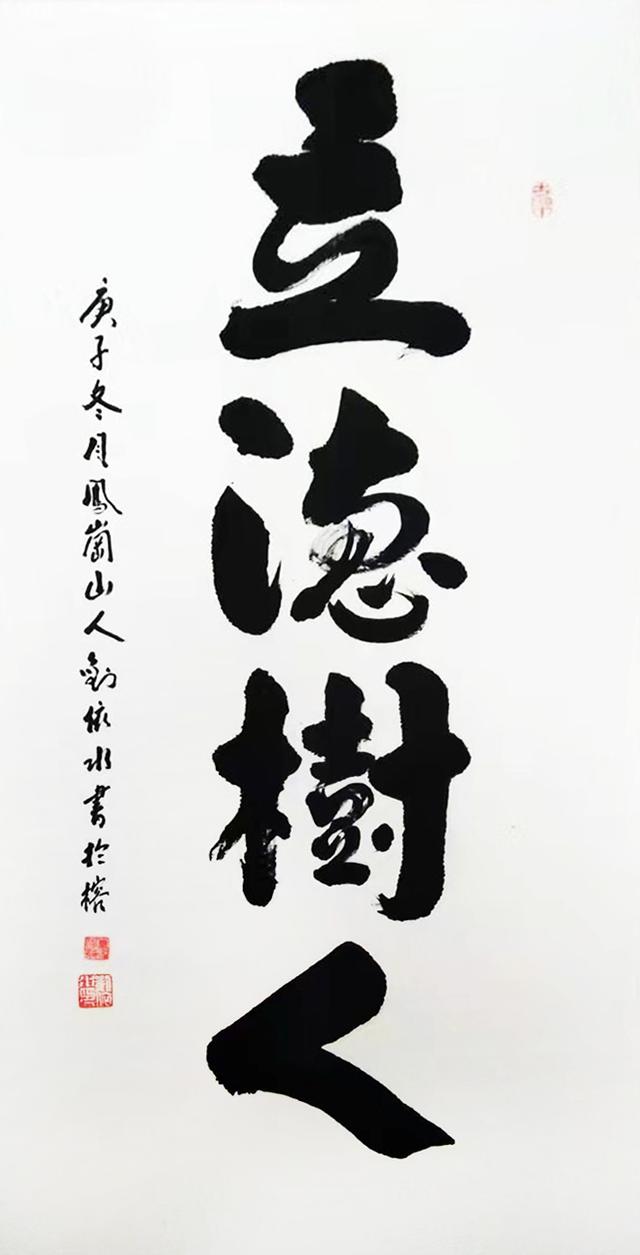 立德樹人
庚子冬月鳳崗山人劉依水書於榕